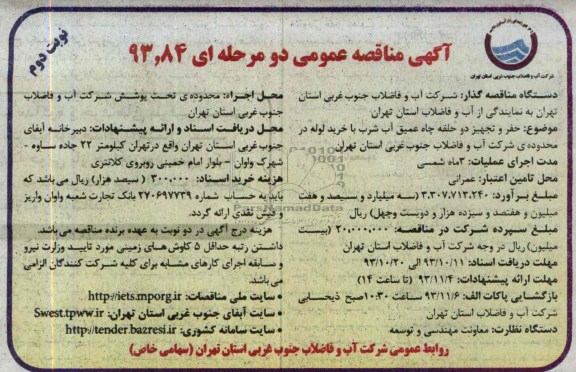 نوبت دوم
آگهی مناقصه عمومی دو مرحله ای ۹۳٫۸۴
شرکت آب و فاضلاب جنوب غربی استان تهران
دستگاه مناقصه گذار: شرکت آب و فاضلاب جنوب غربی استان
تهران به نمایندگی از آب و فاضلاب استان تهران
موضوع: حفر و تجهیز دو حلقه چاه عمیق آب شرب با خرید لوله در
محدوده ی شرکت آب و فاضلاب جنوب غربی استان تهران
مدت اجرای عملیات: ۳ماه شمسی
محل تامین اعتبار: عمرانی
مبلغ برآورد: ۳.۳۰۷.۷۱۳.۲۴۰ (سه میلیارد و سیصد و هفت
میلیون و هفتصد و سیزده هزار و دویست وچهل) ریال
مبلغ سپرده شرکت در مناقصه: ۲۰.۰۰۰.۰۰۰ (بیست
میلیون) ریال در وجه شرکت آب و فاضلاب استان تهران
مهلت دریافت اسناد: ۹۳/۱۰/۱۱ الی ۹۳/۱۰/۳۰
مهلت ارائه پیشنهادات: ۹۳/۱۱/۴ (تا ساعت ۱۴)
بازگشایی پاکات الف: ۹۳/۱۱/۶ ساعت ۱۰:۳۰صبح ذیحسابی
شرکت آب و فاضلاب استان تهران
دستگاه نظارت: معاونت مهندسی و توسعه
محل اجراء: محدوده ی تحت پوشش شرکت آب و فاضلاب
جنوب غربی استان تهران
محل دریافت اسناد و ارائه پیشنهادات: دبیرخانه آبفای
جنوب غربی استان تهران واقع درتهران کیلومتر ۲۲ جاده ساوه -
شهرک واوان - بلوار امام خمینی روبروی کلانتری
هزینه خرید اسناد: ۳۰۰.۰۰۰ ( سیصد هزار) ریال می باشد که
باید به حساب شماره ۲۷۰۶۹۷۷۳۹ بانک تجارت شعبه واوان واریز
و فیش نقدی ارائه گردد.
هزینه درج آگهی در دو نوبت به عهده برنده مناقصه می باشد.
داشتن رتبه حداقل ۵ کاوش های زمینی مورد تایید وزارت نیرو
و سابقه اجرای کارهای مشابه برای کلیه شرکت کنندگان الزامی
می باشد.
• سایت ملی مناقصات: http://iets.mporg.ir
• سایت آبفای جنوب غربی استان تهران: Swest.tpww.ir
• سایت سامانه کشوری: http://tender.bazresi.ir
روابط عمومی شرکت آب و فاضلاب جنوب غربی استان تهران (سهامی خاص)